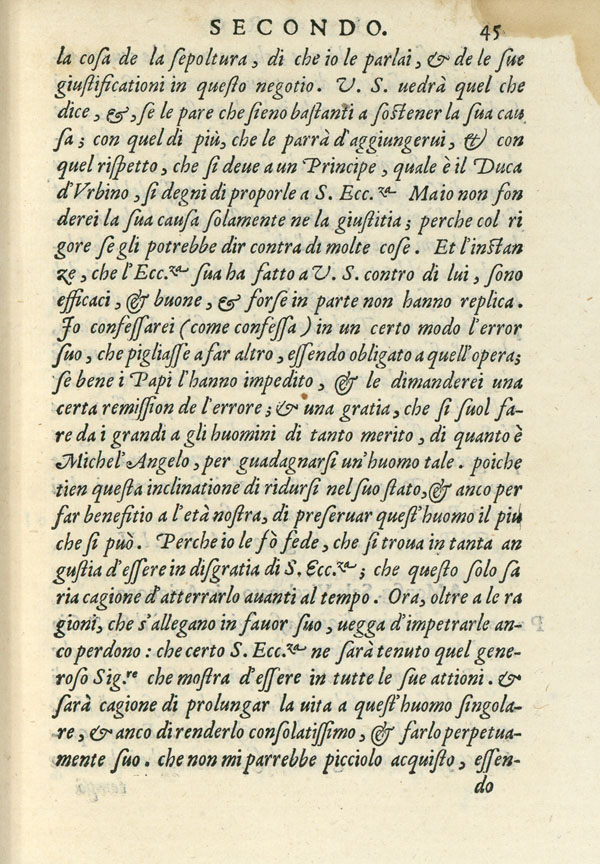 SECONDO. 45
la cosa de la sepoltura, di che io le parlai, & de le sue
giustificationi in questo negotio. V. S. uedrà quel che
dice, &, se le pare che sieno bastanti a sostener la sua cau
sa; con quel di più, che le parrà d'aggiungerui, & con
quel rispetto, che si deue a un Principe, quale è il Duca
d'Vrbino, si degni di proporle a S. Ecc.za Ma io non fon
derei la sua causa solamente ne la giustitia; perche col ri
gore se gli potrebbe dir contra di molte cose. Et l'instan
ze, che l'Ecc.za sua ha fatto a V. S. contro di lui, sono
efficaci, & buone, & forse in parte non hanno replica.
Io confessarei (come confessa) in un certo modo l'error
suo, che pigliasse a far altro, essendo obligato a quell'opera;
se bene i Papi l'hanno impedito, & le dimanderei una
certa remission de l'errore; & una gratia, che si suol fa-
re da i grandi a gli huomini di tanto merito, di quanto è
Michel'Angelo, per guadagnarsi un'huomo tale. poiche
tien questa inclinatione di ridursi nel suo stato, & anco per
far benefitio a l'età nostra, di preseruar quest'huomo il più
che si può. Perche io le fò fede, che si troua in tanta an
gustia d'essere in disgratia di S. Ecc.za; che questo solo sa
ria cagione d'atterrarlo auanti al tempo. Ora, oltre a le ra
gioni, che s'allegano in fauor suo, uegga d'impetrarle an-
co perdono: che certo S. Ecc.za ne sarà tenuto quel gene-
roso Sig.re che mostra d'essere in tutte le sue attioni. &
sarà cagione di prolungar la uita a quest'huomo singola-
re, & anco di renderlo consolatissimo, & farlo perpetua-
mente suo. che non mi parrebbe picciolo acquisto, essen-
do